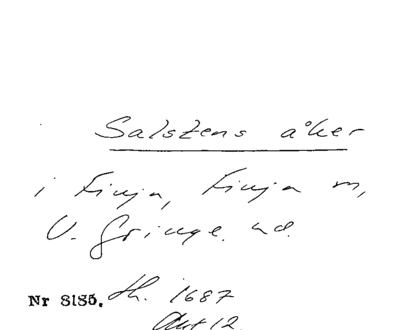 Salstens åker
i Finja, Finja m,
V. Göinge hd.
Nr 8185. th. 1687
Akt 12.